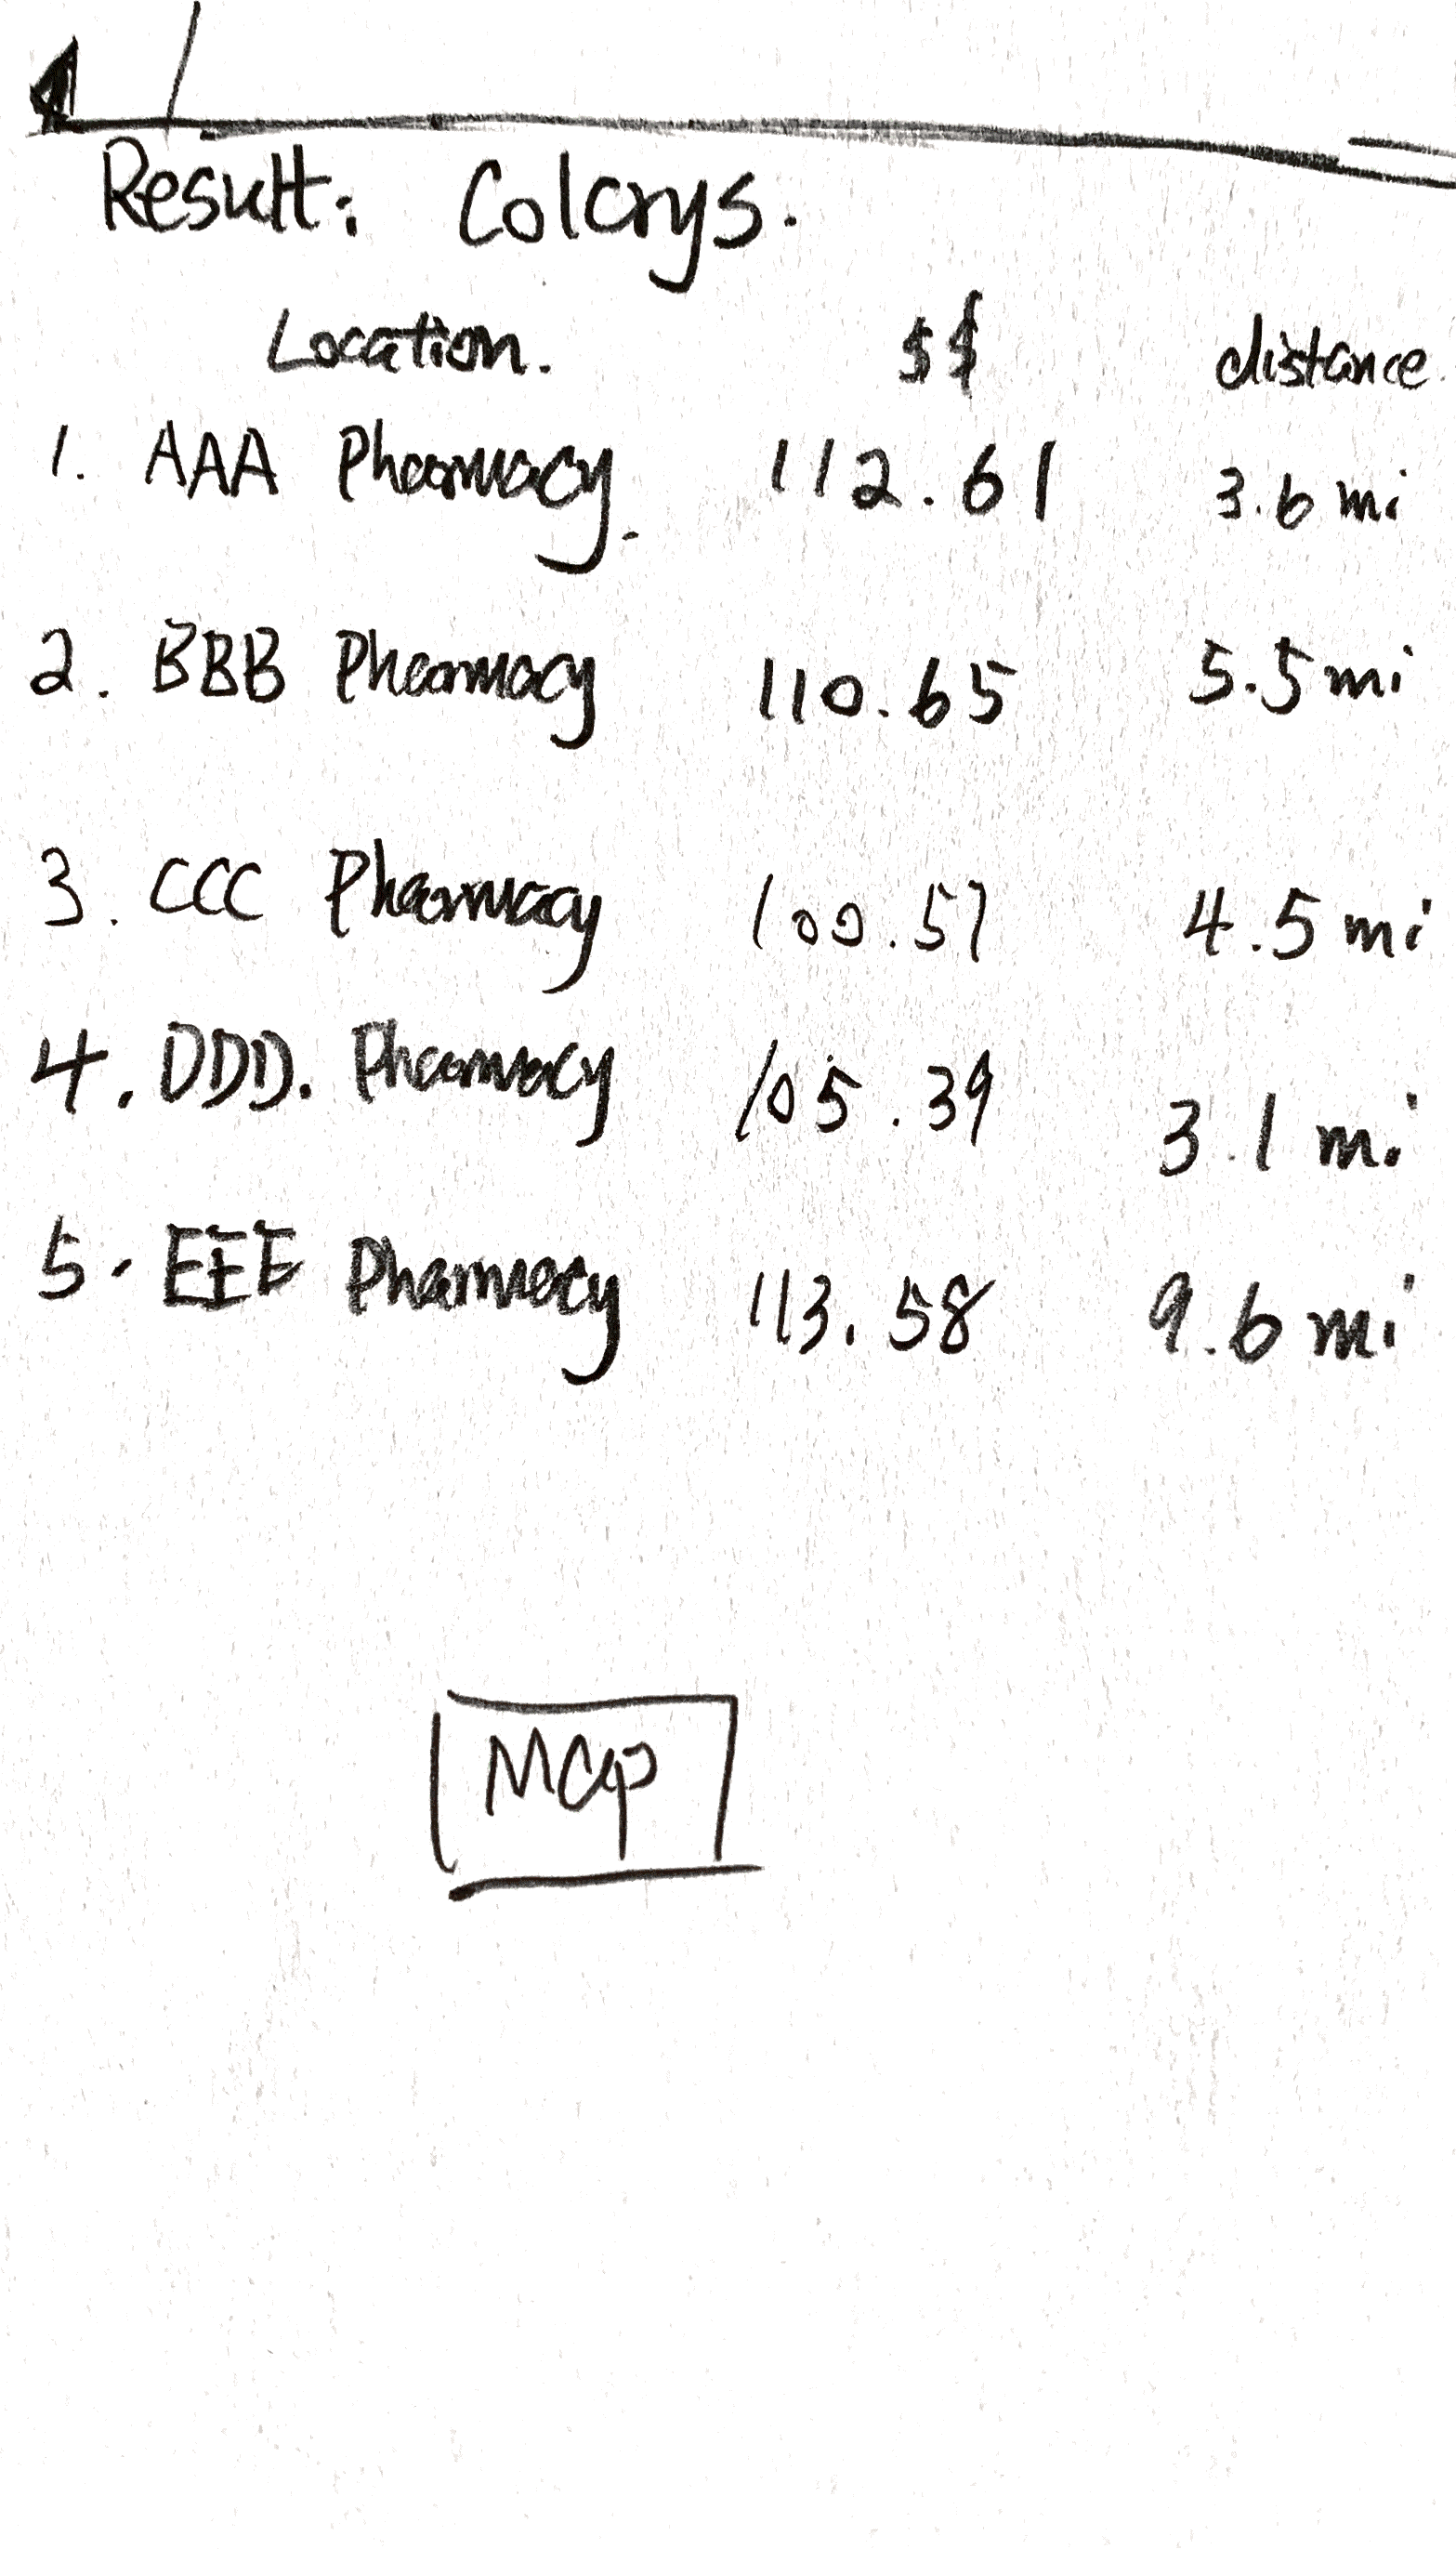 Result: Colcrys.
Location. $$ distance.
1. AAA Pharmacy. 112.61 3.6 mi
2. BBB Pharmacy 110.65 5.5 mi
3. CCC Pharmacy 100.57 4.5 mi
4. DDD. Pharmacy 105.39 3.1 mi
5. EEE Pharmacy 113.58 9.6 mi
Map